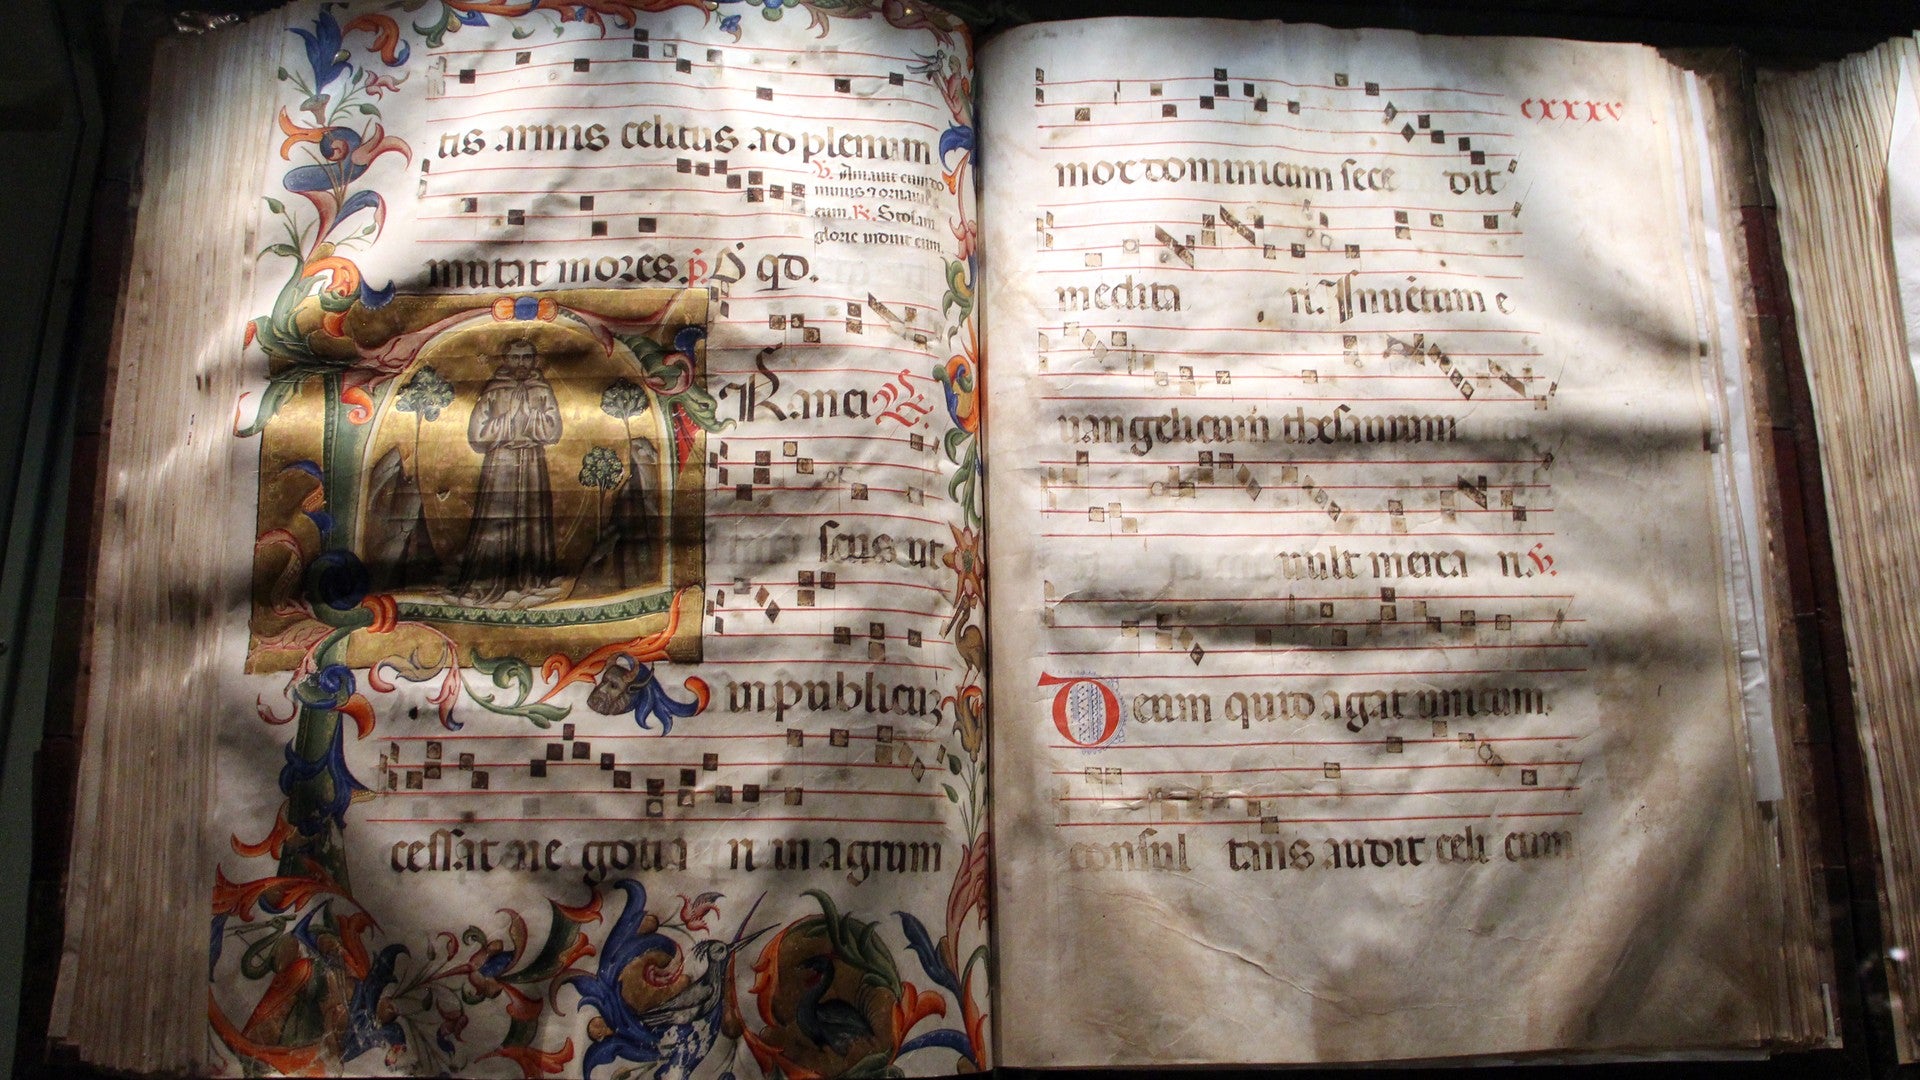 tis armis celitus ad plenum
℣. Amavit eum do
minus ⁊ ornavit
eum. ℟. Stolam
glorie induit eum.
mutat mores. p̄s̄ qd.
Franci ℟.
scus ut
in publico
cessat ne gotia n in agrum
cxxxv
mox dominicum sece dit
medita n. Inuētum e
uangelicum thesaurum
uult merca n. ℣.
Deum quid agat unicum.
consul tans audit celi cum